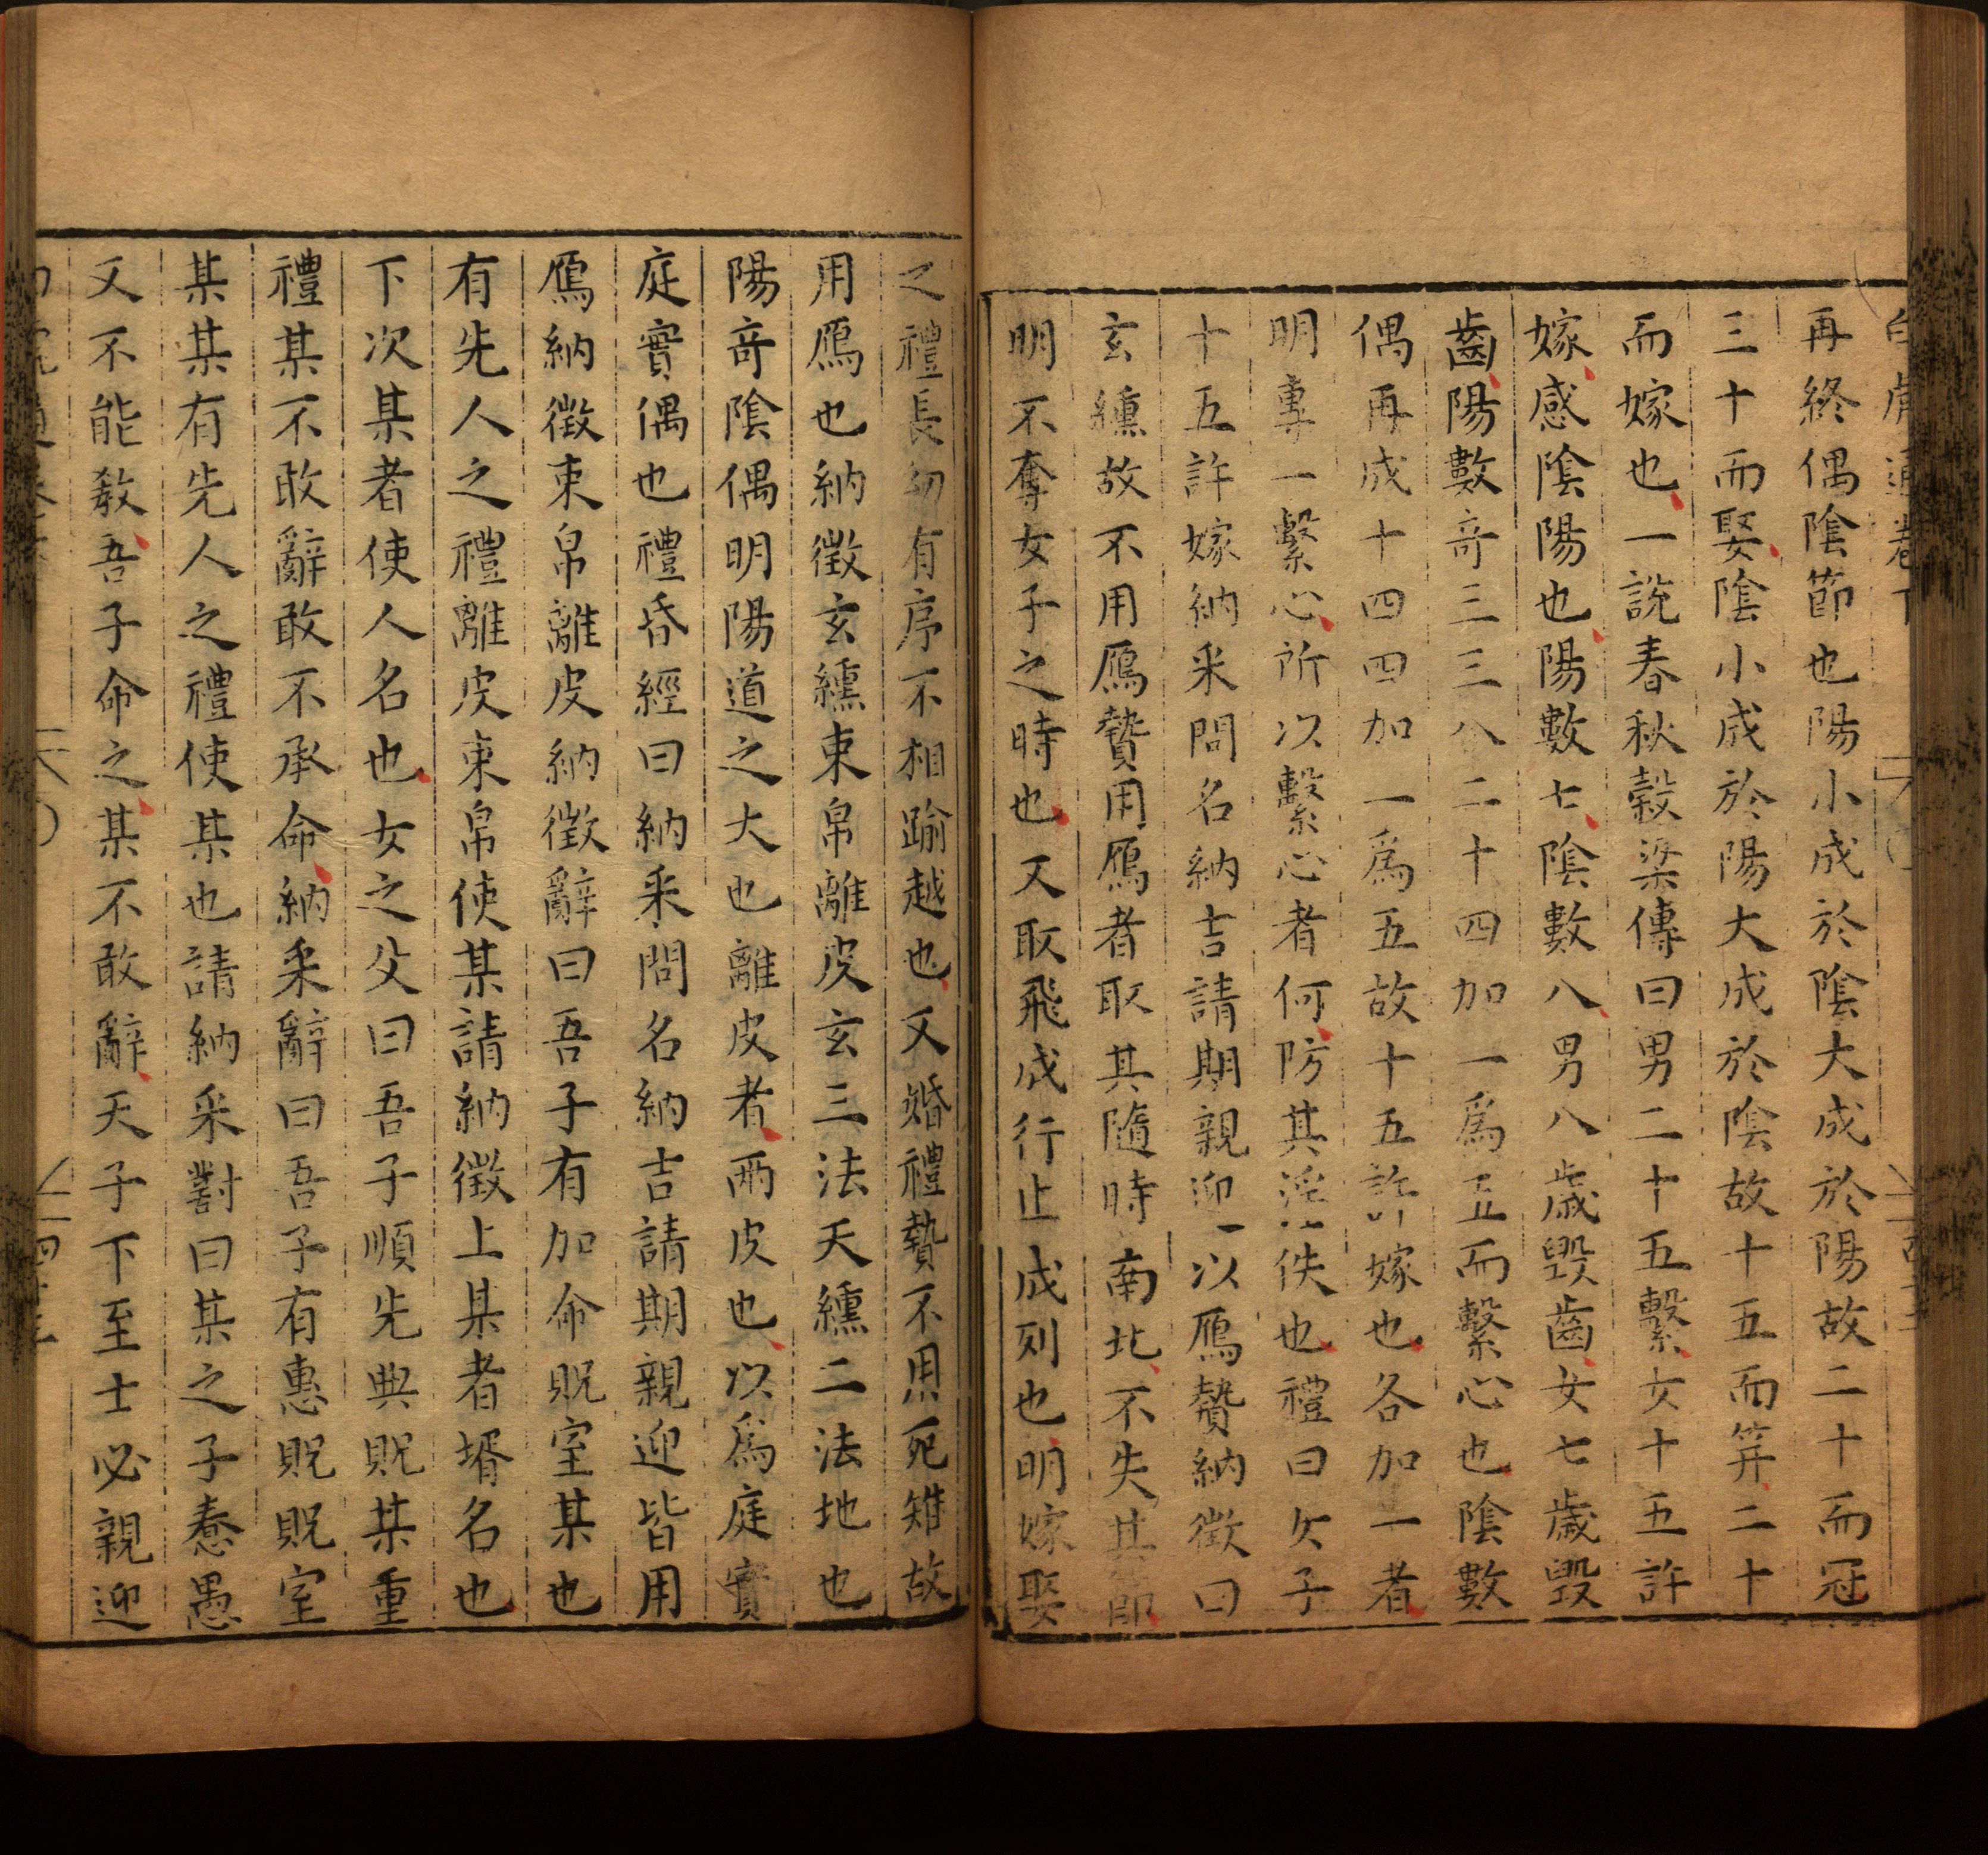 白虎通卷下
再終偶陰節也陽小成於陰大成於陽故二十而冠
三十而娶陰小成於陽大成於陰故十五而笄二十
而嫁也一說春秋穀梁傳曰男二十五繫女十五許
嫁感陰陽也陽數七陰數八男八歲毀齒女七歲毀
齒陽數奇三三八二十四加一爲五而繫心也陰數
偶再成十四四加一爲五故十五許嫁也各加一者
明專一繫心所以繫心者何防其淫佚也禮曰女子
十五許嫁納采問名納吉請期親迎以鴈贄納徵曰
玄纁故不用鴈贄用鴈者取其隨時南北不失其節
明不奪女子之時也又取飛成行止成列也明嫁娶
之禮長幼有序不相踰越也又婚禮贄不用死雉故
用鴈也納徵玄纁束帛離皮玄三法天纁二法地也
陽奇陰偶明陽道之大也離皮者兩皮也以爲庭實
庭實偶也禮昏經曰納采問名納吉請期親迎皆用
鴈納徵束帛離皮納徵辭曰吾子有加命貺室某也
有先人之禮離皮束帛使某請納徵上某者壻名也
下次某者使人名也女之父曰吾子順先典貺某重
禮某不敢辭敢不承命納采辭曰吾子有惠貺貺室
某某有先人之禮使某也請納采對曰某之子惷愚
又不能敎吾子命之某不敢辭天子下至士必親迎